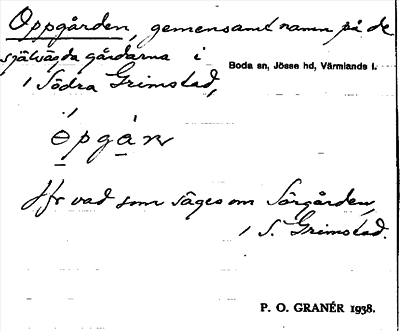 Oppgården, gemensamt namn på de
självägda gårdarna i
Boda sn, Jösse hd, Värmlands l.
i Södra Grimstad,
öpgán
Jfr vad som säges om Sörgården,
i S. Grimstad.
P. O. GRANÉR 1938.